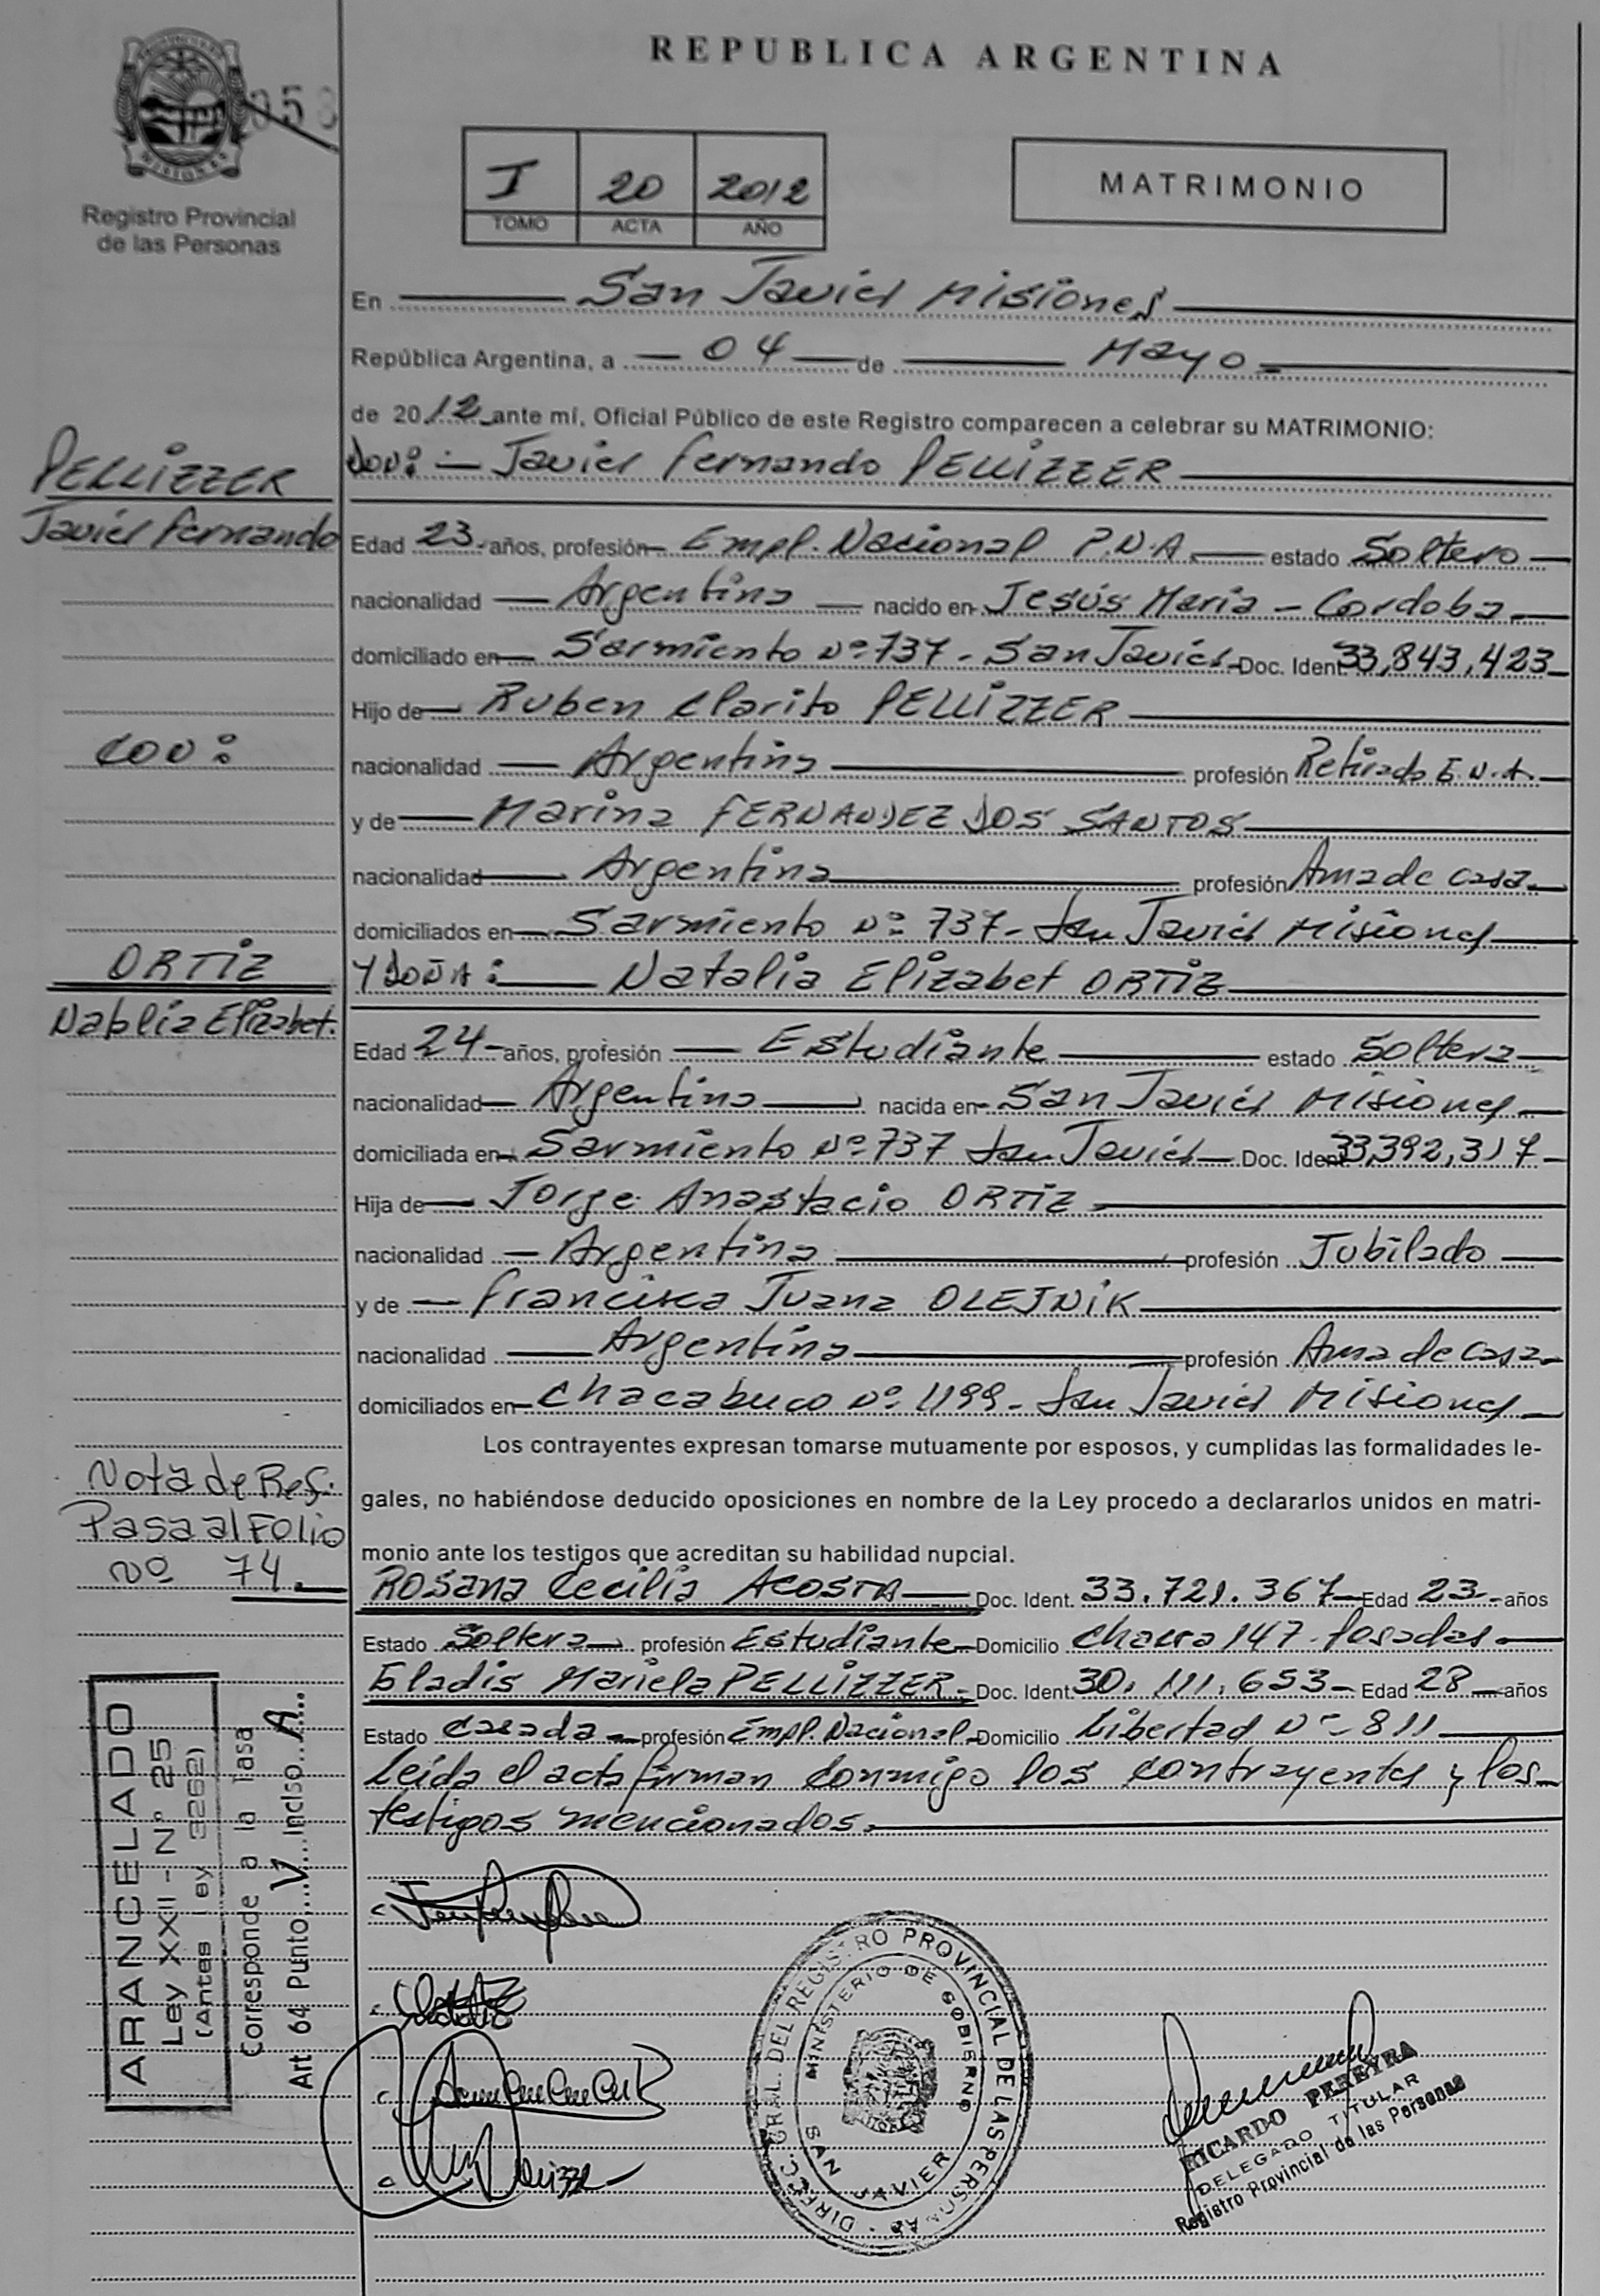 REPUBLICA ARGENTINA
053
MISIONES
Registro Provincial
de las Personas
I 20 2012
TOMO ACTA AÑO
MATRIMONIO
En San Javier Misiones
República Argentina, a 04 de Mayo
de 2012 ante mí, Oficial Público de este Registro comparecen a celebrar su MATRIMONIO:
PELLIZZER
Javier Fernando
DON: Javier Fernando PELLIZZER
Edad 23 años, profesión Empl. Nacional P.N.A. estado Soltero
nacionalidad Argentina nacido en Jesús María - Cordoba
domiciliado en Sarmiento Nº 737 - San Javier Doc. Ident. 33,843,423
Hijo de Ruben Clarito PELLIZZER
CON:
nacionalidad Argentina profesión Retirado
y de Marina FERNANDEZ DOS SANTOS
nacionalidad Argentina profesión Ama de casa
domiciliados en Sarmiento Nº 737 - San Javier Misiones
ORTIZ
Natalia Elizabet.
Y DOÑA: Natalia Elizabet ORTIZ
Edad 24 años, profesión Estudiante estado Soltera
nacionalidad Argentina nacida en San Javier Misiones
domiciliada en Sarmiento Nº 737 San Javier Doc. Ident. 33,392,317
Hija de Jorge Anastacio ORTIZ
nacionalidad Argentina profesión Jubilado
y de Francisca Juana OLEJNIK
nacionalidad Argentina profesión Ama de casa
domiciliados en Chacabuco Nº 1199 - San Javier Misiones
Los contrayentes expresan tomarse mutuamente por esposos, y cumplidas las formalidades le-
gales, no habiéndose deducido oposiciones en nombre de la Ley procedo a declararlos unidos en matri-
monio ante los testigos que acreditan su habilidad nupcial.
Nota de Ref:
Pasa al Folio
nº 74
ROSANA Cecilia ACOSTA Doc. Ident. 33.721.367 Edad 23 años
Estado Soltera profesión Estudiante Domicilio Chacra 147 - Posadas
Gladis Mariela PELLIZZER Doc. Ident. 30.111.653 Edad 28 años
Estado Casada profesión Empl. Nacional Domicilio Libertad Nº 811
Leída el acta firman conmigo los contrayentes y los
testigos mencionados.
ARANCELADO
Ley XXII - Nº 25
(Antes Ley 3262)
Corresponde a la Tasa
Art. 64 Punto V Inciso A
DIRECC. GRAL. DEL REGISTRO PROVINCIAL DE LAS PERSONAS
MINISTERIO DE GOBIERNO
SAN JAVIER
RICARDO PEREYRA
DELEGADO TITULAR
Registro Provincial de las Personas